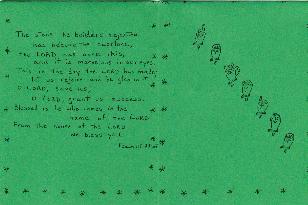 The stone the builders rejected
has become the capstone,
the LORD has done this,
and it is marvelous in our eyes.
This is the day the LORD has made;
let us rejoice and be glad in it.
O LORD, save us,
O LORD, grant us success.
Blessed is he who comes in the
name of the LORD
From the house of the LORD
we bless you.
Psalm